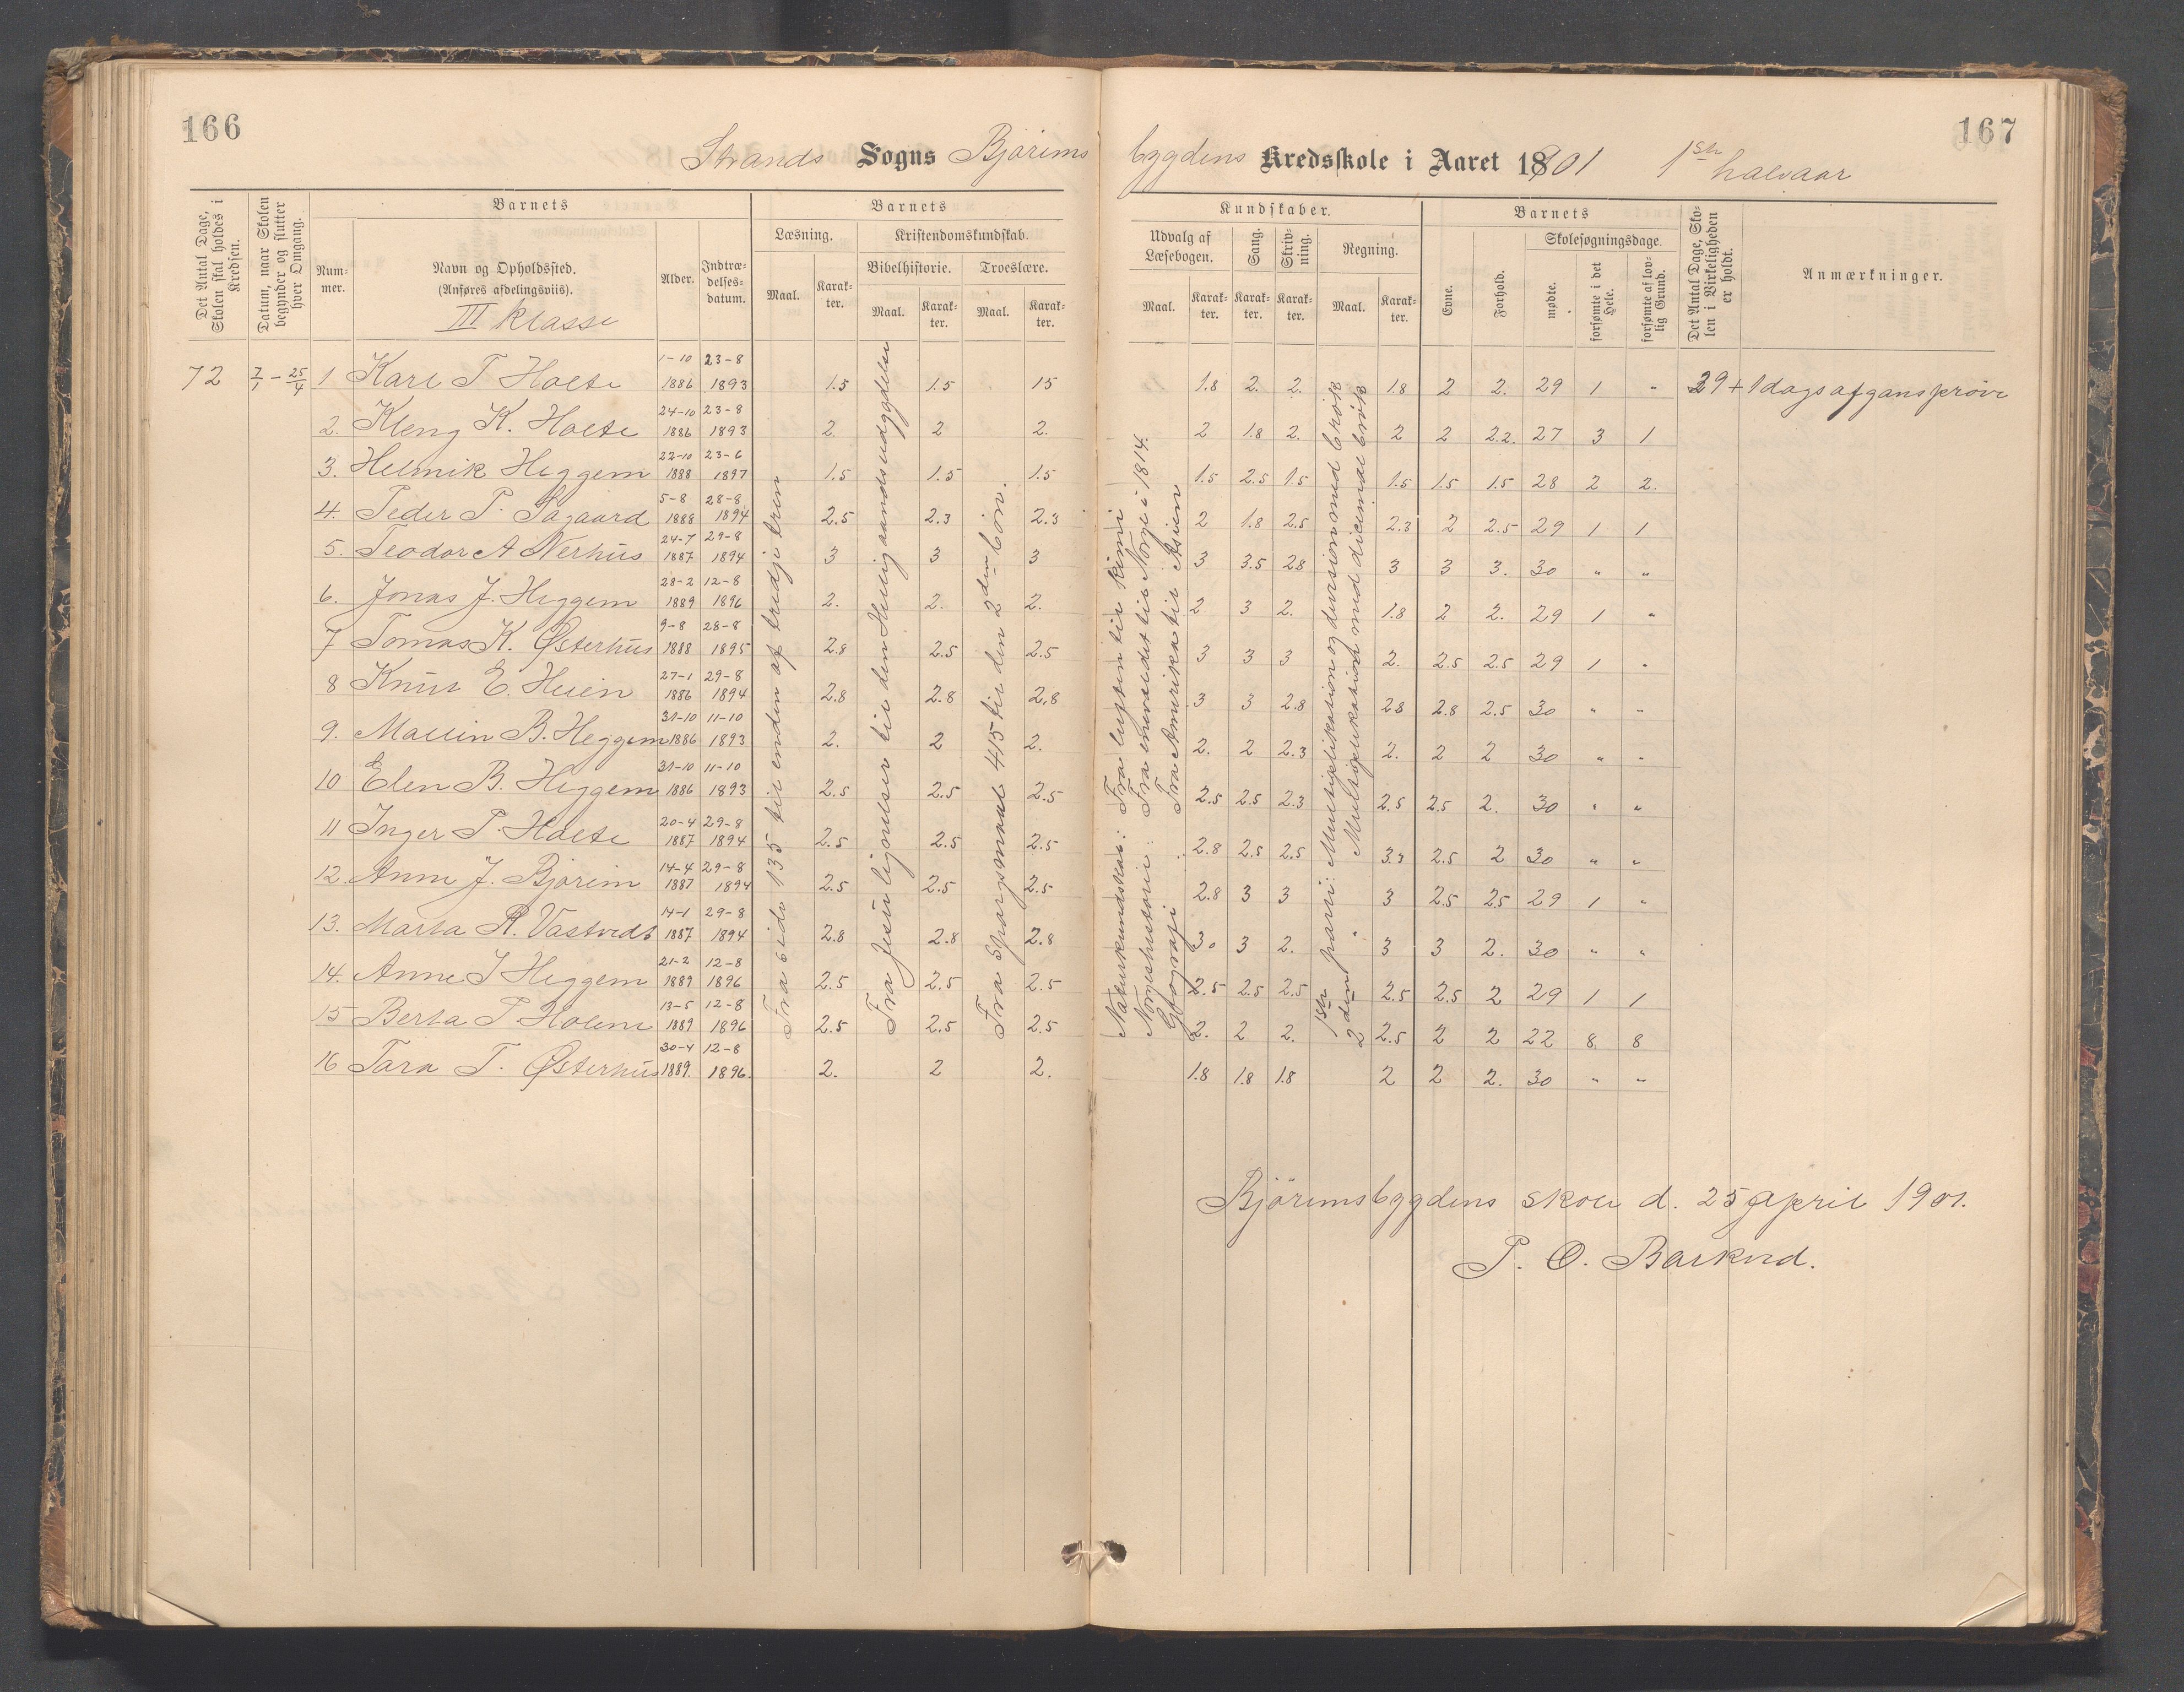 166
Strands Sogns Bjørims
Det Antal Dage, Skolen skal holdes i Kredsen.
Datum, naar Skolen begynder og slutter hver Omgang.
Barnets
Barnets
Nummer.
Navn og Opholdssted.
(Anføres afdelingsviis).
III klasse
Alder.
Indtrædelsesdatum.
Læsning.
Kristendomskundskab.
Bibelhistorie.
Troeslære.
Maal. Karakter. Maal. Karakter. Maal. Karakter.
72 7/1 – 25/4 1 Karl T Holte 1-10 1886 23-8 1893 1.5 1.5 15
2. Kleng K. Holte 24-10 1886 23-8 1893 2. 2 2.
3. Helmik Heggem 22-10 1888 23-6 1897 1.5 1.5 1.5
4. Peder P. Tagaard 5-8 1888 28-8 1894 2.5 2.3 2.3
5. Teodor A Nerhus 24-7 1887 29-8 1894 3 3 3
6. Jonas J. Heggem 28-2 1889 12-8 1896 2. 2. 2.
7 Tomas K. Østerhus 9-8 1888 28-8 1895 2.8 2.5 2.5
8 Knut E. Heien 27-1 1886 29-8 1894 2.8 2.8 2.8
9. Mallin B. Heggem 31-10 1886 11-10 1893 2. 2 2.
10 Elen B. Heggem 31-10 1886 11-10 1893 2.5 2.5 2.5
11 Inger P. Holte 20-4 1887 29-8 1894 2.5 2.5 2.5
12. Anne J. Bjørim 14-4 1887 29-8 1894 2.5 2.5 2.5
13. Marta R. Vastvedt 14-1 1887 29-8 1894 2.8 2.8 2.8
14. Anne J Heggem 21-2 1889 12-8 1896 2.5 2.5 2.5
15 Berta T Holem 13-5 1889 12-8 1896 2.5 2.5 2.5
16 Tara T. Østerhus 30-4 1889. 12-8 1896. 2. 2 2.
Fra side 135 til enden af tredje trin
Fra Jesu lignelser til den Hellig aands udgydelse
Fra Spørgsmaal 415 til den 2den bøn.
167
bygdens Kredsskole i Aaret 1901 1ste halvaar
Kundskaber.
Barnets
Udvalg af Læsebogen.
Sang.
Skrivning.
Regning.
Skolesøgningsdage.
Maal. Karakter. Karakter. Karakter. Maal. Karakter.
Evne.
Forhold.
mødte.
forsømte i det Hele.
forsømte af lovlig Grund.
Det Antal Dage, Skolen i Virkeligheden er holdt.
Anmærkninger.
1.8 2. 2. 1.8 2 2. 29 1 " 29 + 1 dags afgansprøve
2 1.8 2. 2 2 2.2. 27 3 1
1.5 2.5 1.5 1.5 1.5 1.5 28 2 2.
2 1.8 2.5 2.3 2 2.5 29 1 1
3 3.5 28 3 3 3. 30 " "
2 3 2. 1.8 2 2. 29 1 "
3 3 3 2. 2.5 2.5 29 1 "
3 3 2.8 28 2.8 2.5 30 " "
2. 2 2.3 2. 2 2 30 " "
2.5 2.5 2.3 2.5 2.5 2. 30 " "
2.8 2.5 2.5 3.3 2.5 2 30 " "
2.8 3 3 3 2.5 25 29 1 "
30 3 2. 3 3 2. 30 " "
2.5 2.5 2.5 2.5 2.5 2 29 1 1
2. 2 2. 2.5 2 2 22 8 8
1.8 1.8 1.8 2 2 2. 30 " "
Naturkundskab: Fra lysten til kimi
Norgeshistorie: Fra enevældet til Norge i 1814.
Geografi Fra Amerika til Asien
1ste parti: Multiplikation og division med brøk
2den " Multiplikation med decimal brøk
Bjørimsbygdens skole d. 25 april 1901.
P. O. Barkved.